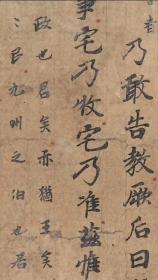 乃敢告教厥后曰
事宅乃牧宅乃准兹惟
政也君矣亦猶王矣
〻〻民九州之伯也居